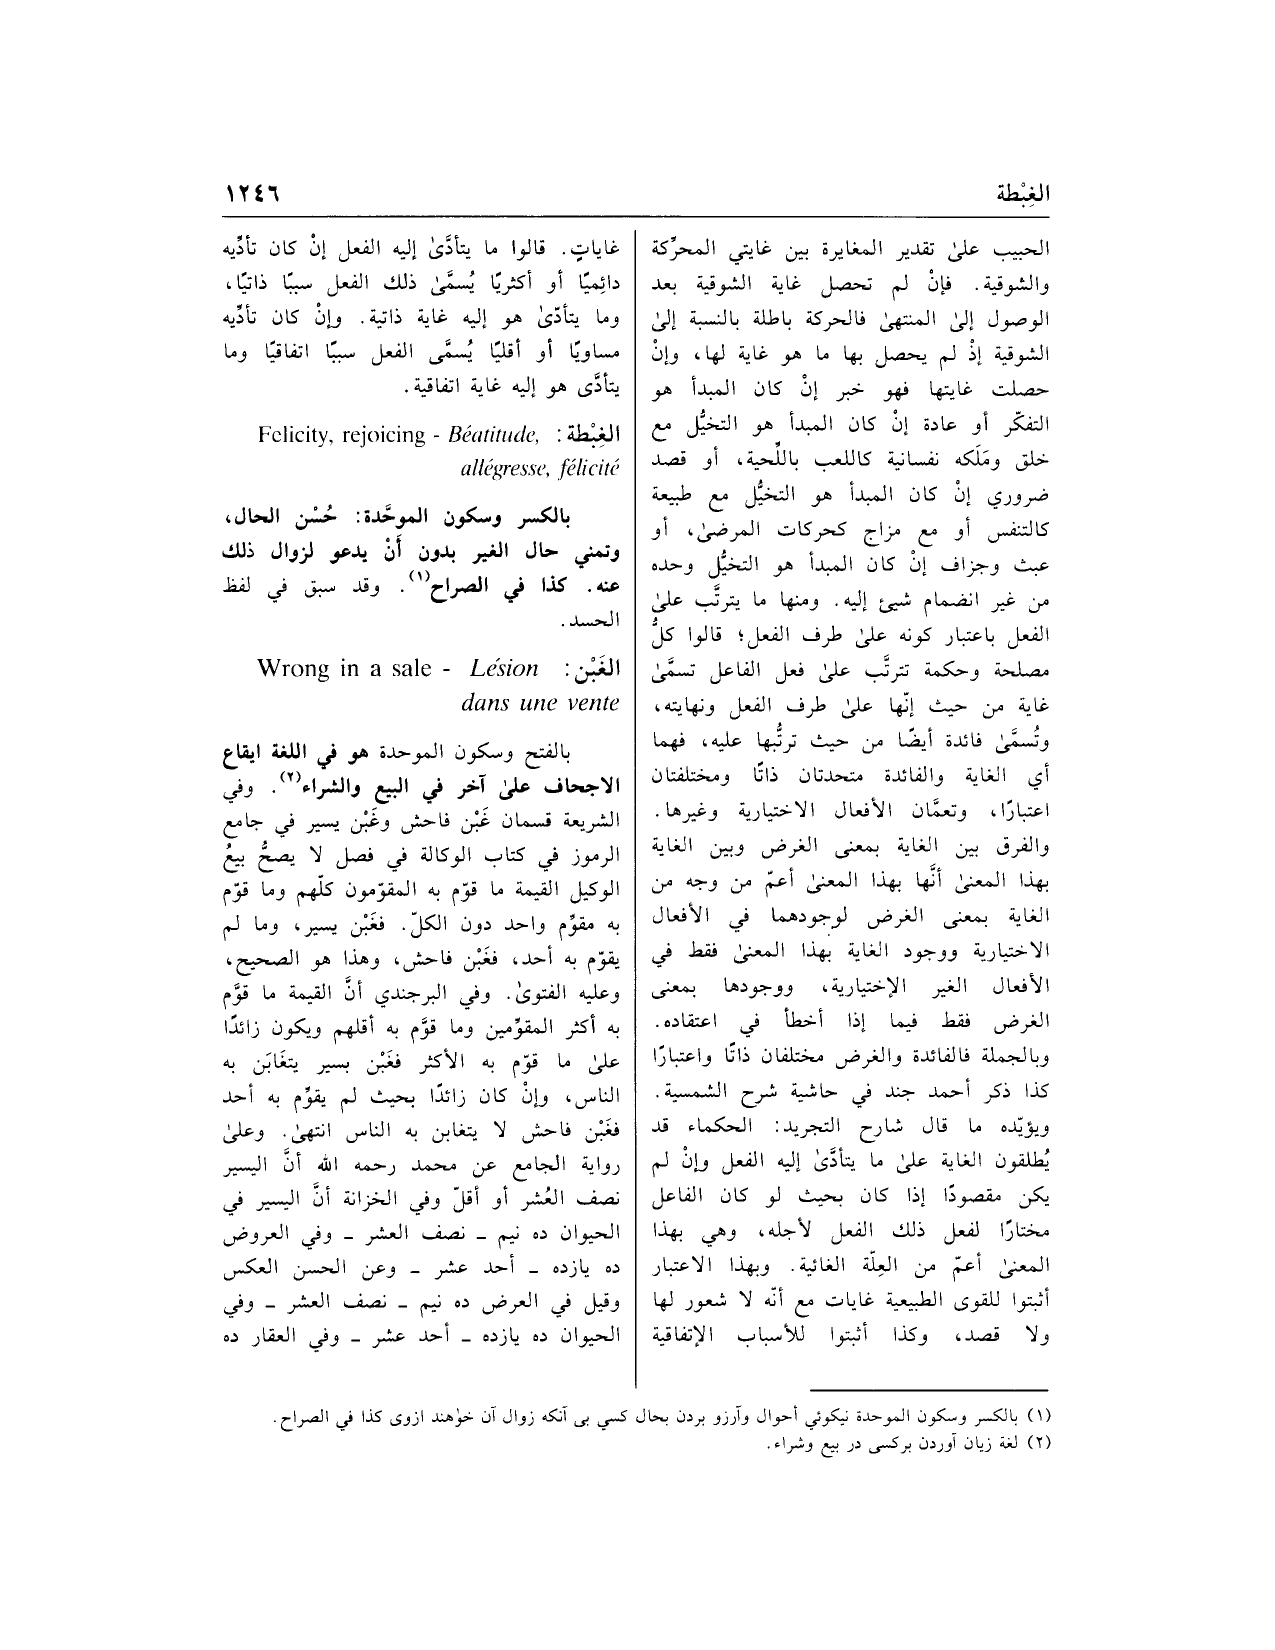 الغِبْطة
١٢٤٦
الحبيب علىٰ تقدير المغايرة بين غايتي المحرِّكة
والشوقية. فإنْ لم تحصل غاية الشوقية بعد
الوصول إلىٰ المنتهىٰ فالحركة باطلة بالنسبة إلىٰ
الشوقية إذْ لم يحصل بها ما هو غاية لها، وإنْ
حصلت غايتها فهو خبر إنْ كان المبدأ هو
التفكّر أو عادة إنْ كان المبدأ هو التخيُّل مع
خلق ومَلَكه نفسانية كاللعب باللِّحية، أو قصد
ضروري إنْ كان المبدأ هو التخيُّل مع طبيعة
كالتنفس أو مع مزاج كحركات المرضىٰ، أو
عبث وجزاف إنْ كان المبدأ هو التخيُّل وحده
من غير انضمام شيئ إليه. ومنها ما يترتَّب علىٰ
الفعل باعتبار كونه علىٰ طرف الفعل؛ قالوا كلُّ
مصلحة وحكمة تترتَّب علىٰ فعل الفاعل تسمَّىٰ
غاية من حيث إنّها علىٰ طرف الفعل ونهايته،
وتُسمَّىٰ فائدة أيضًا من حيث ترتُّبها عليه، فهما
أي الغاية والفائدة متحدتان ذاتًا ومختلفتان
اعتبارًا، وتعمَّان الأفعال الاختيارية وغيرها.
والفرق بين الغاية بمعنى الغرض وبين الغاية
بهذا المعنىٰ أنَّها بهذا المعنىٰ أعمّ من وجه من
الغاية بمعنى الغرض لوجودهما في الأفعال
الاختيارية ووجود الغاية بهذا المعنىٰ فقط في
الأفعال الغير الإختيارية، ووجودها بمعنى
الغرض فقط فيما إذا أخطأ في اعتقاده.
وبالجملة فالفائدة والغرض مختلفان ذاتًا واعتبارًا
كذا ذكر أحمد جند في حاشية شرح الشمسية.
ويؤيّده ما قال شارح التجريد: الحكماء قد
يُطلقون الغاية علىٰ ما يتأدَّىٰ إليه الفعل وإنْ لم
يكن مقصودًا إذا كان بحيث لو كان الفاعل
مختارًا لفعل ذلك الفعل لأجله، وهي بهذا
المعنىٰ أعمّ من العِلّة الغائية. وبهذا الاعتبار
أثبتوا للقوى الطبيعية غايات مع أنّه لا شعور لها
ولا قصد، وكذا أثبتوا للأسباب الإتفاقية
غاياتٍ. قالوا ما يتأدَّىٰ إليه الفعل إنْ كان تأدِّيه
دائِميًا أو أكثريًا يُسمَّىٰ ذلك الفعل سببًا ذاتيًا،
وما يتأدّىٰ هو إليه غاية ذاتية. وإنْ كان تأدِّيه
مساويًا أو أقليًا يُسمَّى الفعل سببًا اتفاقيًا وما
يتأدَّى هو إليه غاية اتفاقية.
الغِبْطة: Felicity, rejoicing - Béatitude,
allégresse, félicité
بالكسر وسكون الموحَّدة: حُسْن الحال،
وتمني حال الغير بدون أَنْ يدعو لزوال ذلك
عنه. كذا في الصراح(١). وقد سبق في لفظ
الحسد.
الغَبْن: Wrong in a sale - Lésion
dans une vente
بالفتح وسكون الموحدة هو في اللغة ايقاع
الاجحاف علىٰ آخر في البيع والشراء(٢). وفي
الشريعة قسمان غَبْن فاحش وغَبْن يسير في جامع
الرموز في كتاب الوكالة في فصل لا يصحُّ بيعُ
الوكيل القيمة ما قوّم به المقوّمون كلّهم وما قوّم
به مقوِّم واحد دون الكلّ. فغَبْن يسير، وما لم
يقوّم به أحد، فغَبْن فاحش، وهذا هو الصحيح،
وعليه الفتوىٰ. وفي البرجندي أنَّ القيمة ما قوَّم
به أكثر المقوِّمين وما قوَّم به أقلهم ويكون زائدًا
علىٰ ما قوّم به الأكثر فغَبْن يسير يتغَابَن به
الناس، وإنْ كان زائدًا بحيث لم يقوِّم به أحد
فغَبْن فاحش لا يتغابن به الناس انتهىٰ. وعلىٰ
رواية الجامع عن محمد رحمه الله أنَّ اليسير
نصف العُشر أو أقلّ وفي الخزانة أنَّ اليسير في
الحيوان ده نيم ـ نصف العشر ـ وفي العروض
ده يازده ـ أحد عشر ـ وعن الحسن العكس
وقيل في العرض ده نيم ـ نصف العشر ـ وفي
الحيوان ده يازده ـ أحد عشر ـ وفي العقار ده
(١) بالكسر وسكون الموحدة نيكوئي أحوال وآرزو بردن بحال كسي بى آنكه زوال آن خوٰهند ازوى كذا في الصراح.
(٢) لغة زيان آوردن بركسى در بيع وشراء.